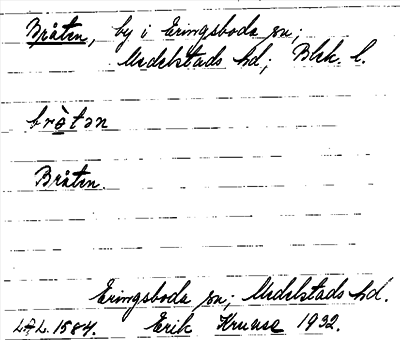 Bråten, by i Eringsboda sn;
Medelstads hd; Blek. l.
brå̀tən
Bråten.
Eringsboda sn; Medelstads hd.
L.A.L. 1584. Erik Kruuse 1932.